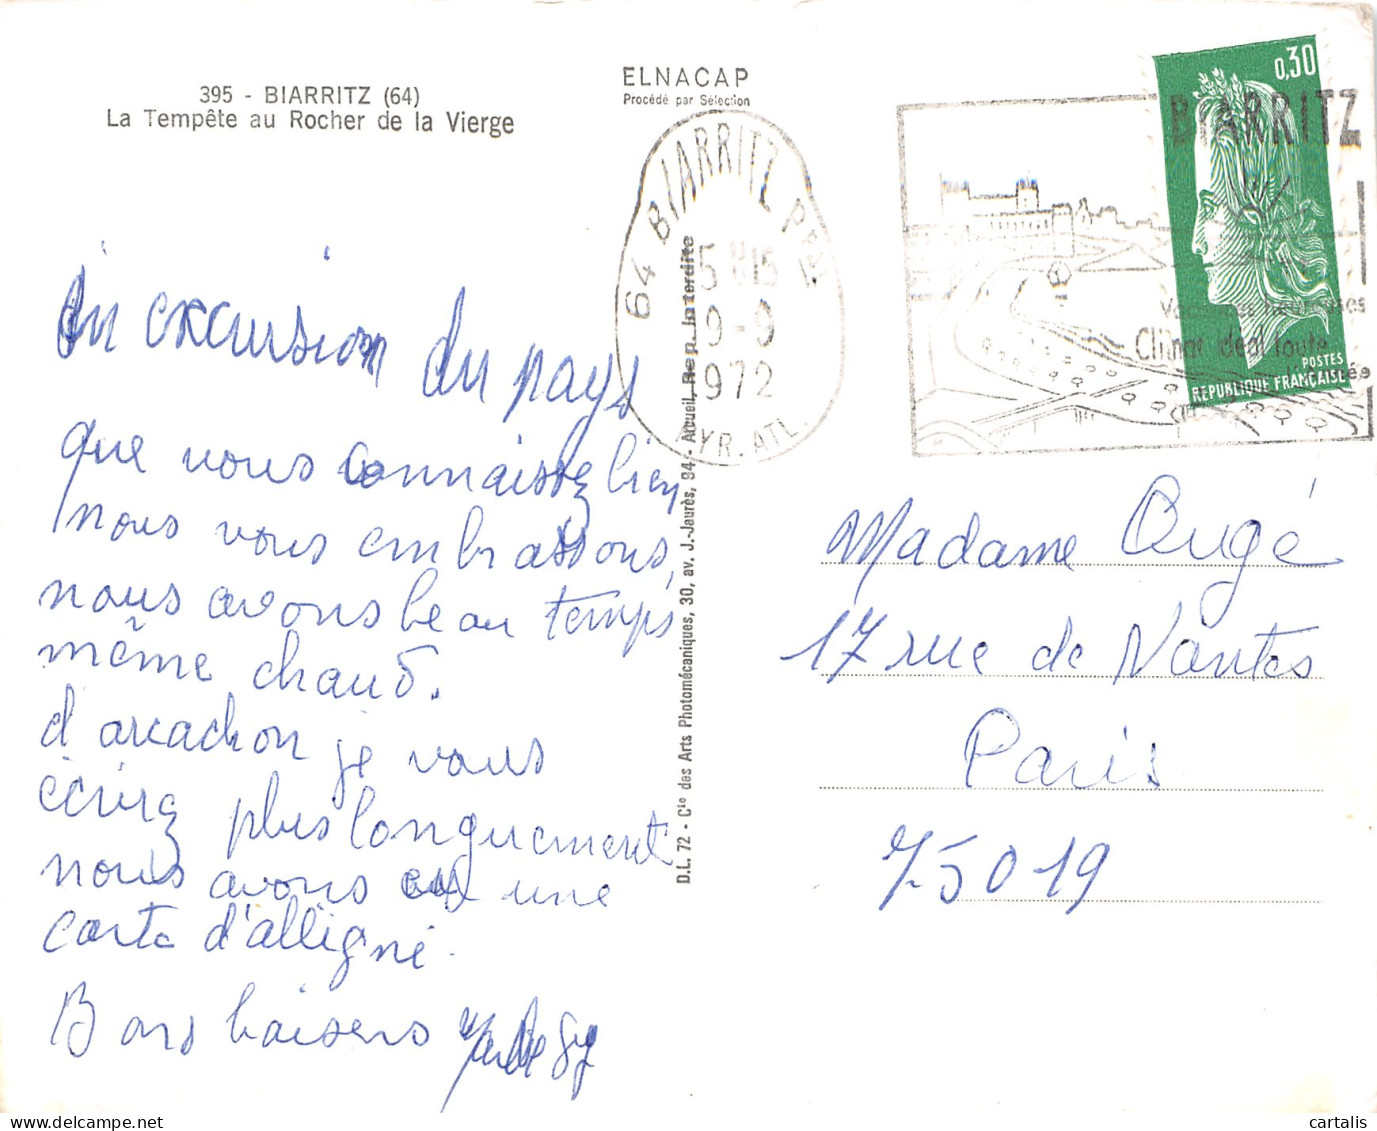 395 - BIARRITZ (64)
La Tempête au Rocher de la Vierge
ELNACAP
Procédé par Sélection
64 BIARRITZ Pal
15 H 15
9 - 9
1972
PYR. ATL.
0,30
POSTES
REPUBLIQUE FRANÇAISE
BIARRITZ
Climat idéal toute
D.L. 72 - Cie des Arts Photomécaniques, 30, av. J.-Jaurès, 94 - Arcueil, Rep. Interdite
En excursion du pays
que vous connaissez bien
nous vous embrassons,
nous avons beau temps
même chaud.
d'arcachon je vous
écrirez plus longuement
nous avons eu une
carte d'alligné.
Bons baisers
Madame Augé
17 rue de Nantes
Paris
75019
cartalis